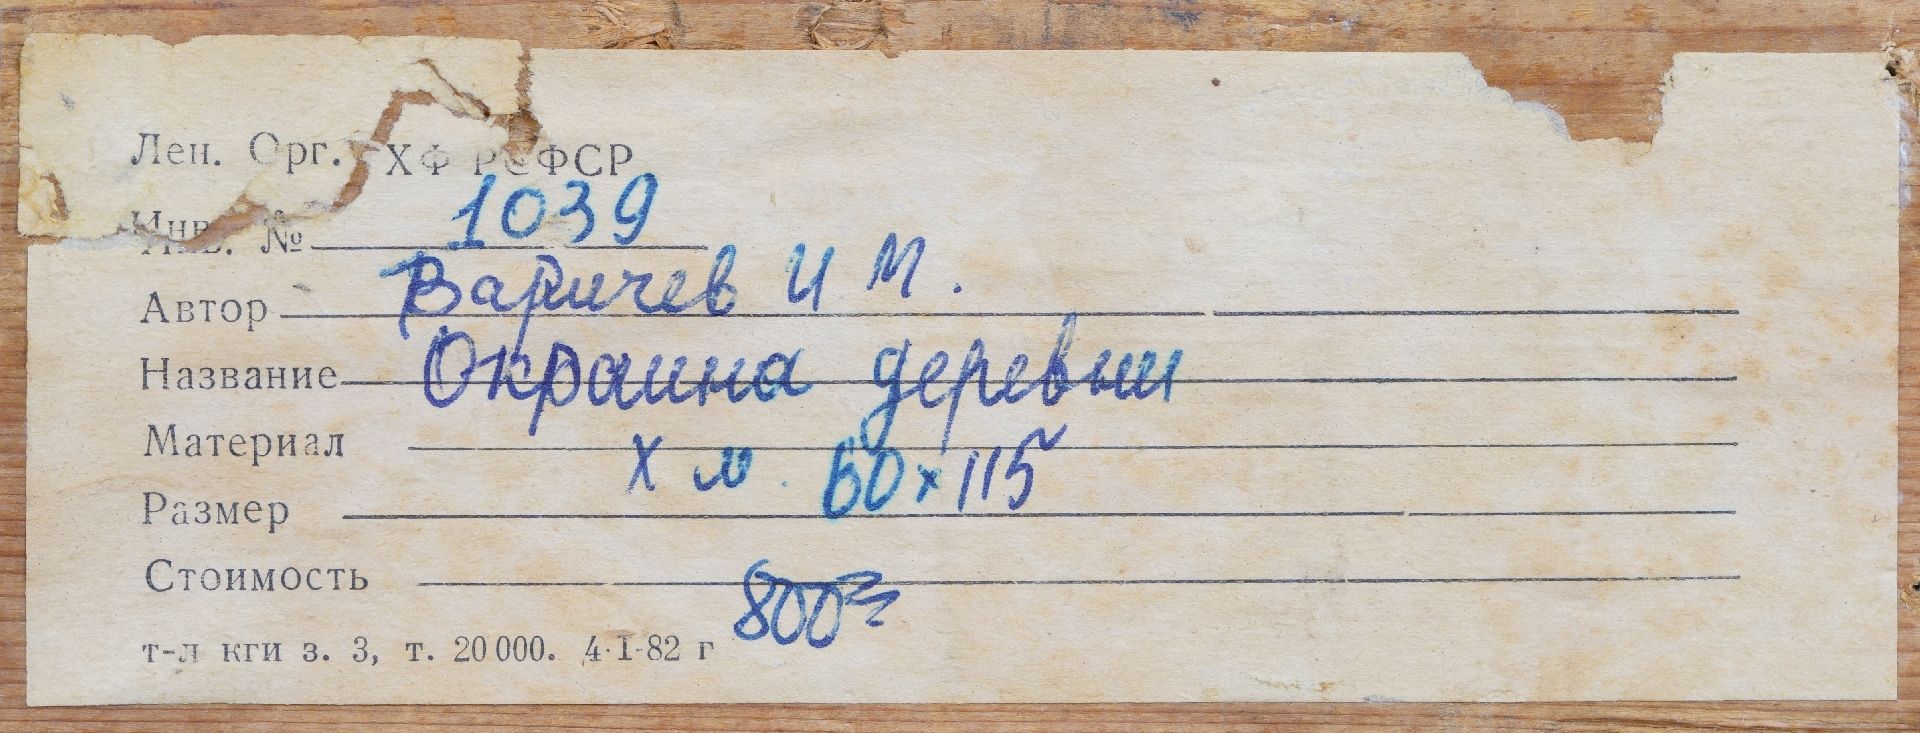 Лен. Орг. ХФ РСФСР
Инв. № 1039
Автор Варичев И М.
Название Окраина деревни
Материал х м. 60х115
Размер
Стоимость 800
т-л кги з. 3, т. 20 000. 4-I-82 г